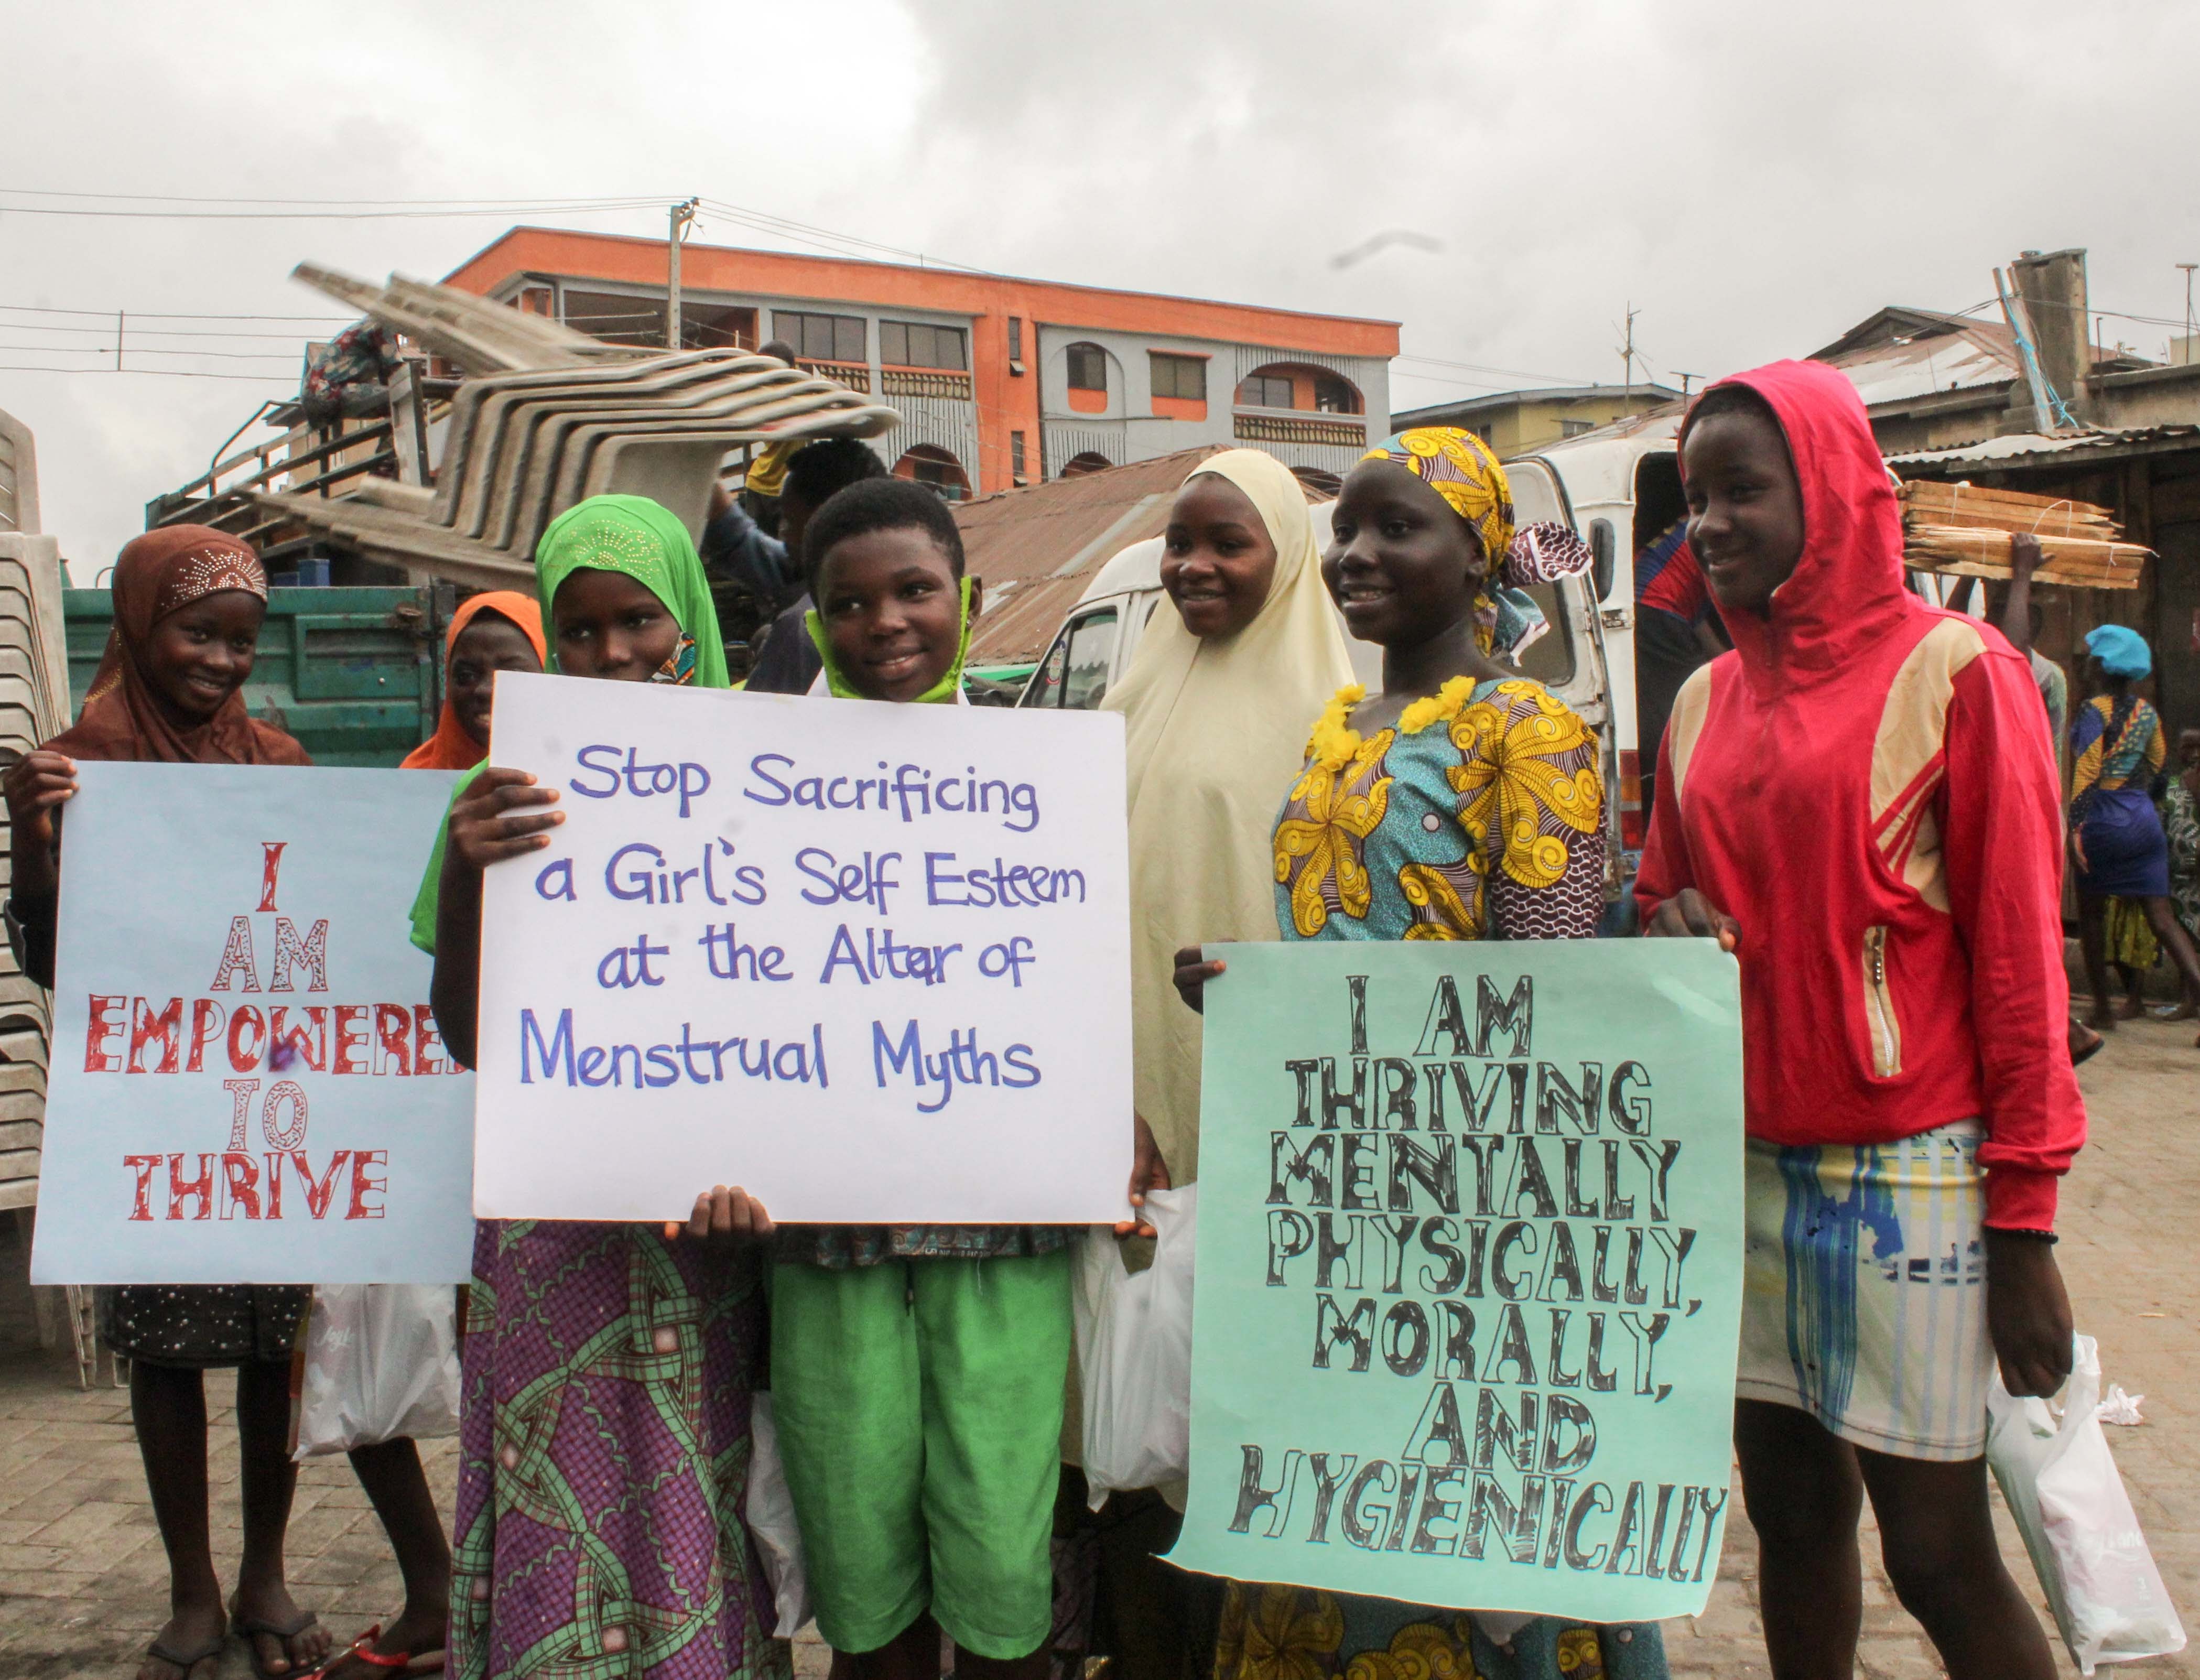 I
AM
EMPOWERED
TO
THRIVE
Stop Sacrificing
a Girl's Self Esteem
at the Altar of
Menstrual Myths
I AM
THRIVING
MENTALLY
PHYSICALLY,
MORALLY,
AND
HYGIENICALLY